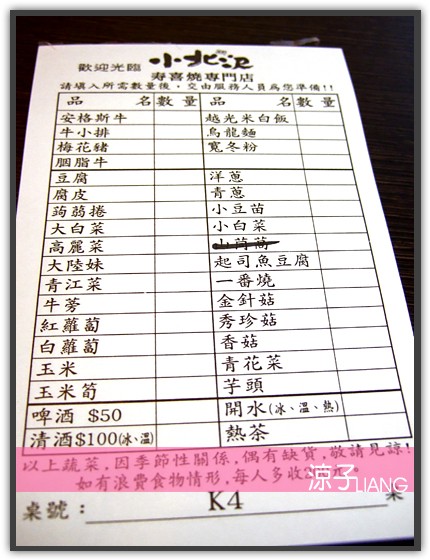 歡迎光臨 小北沢
寿喜燒專門店
請填入所需數量後，交由服務人員為您準備!!
品 名 數量 品 名 數量
安格斯牛 越光米白飯
牛小排 烏龍麵
梅花豬 寬冬粉
胭脂牛
豆腐 洋蔥
腐皮 青蔥
蒟蒻捲 小豆苗
大白菜 小白菜
高麗菜 山茼蒿
大陸妹 起司魚豆腐
青江菜 一番燒
牛蒡 金針菇
紅蘿蔔 秀珍菇
白蘿蔔 香菇
玉米 青花菜
玉米筍 芋頭
啤酒 $50 開水(冰、溫、熱)
清酒$100(冰、溫) 熱茶
以上蔬菜，因季節性關係，偶有缺貨，敬請見諒!
如有浪費食物情形，每人多收2
涼子LIANG
桌號： K4